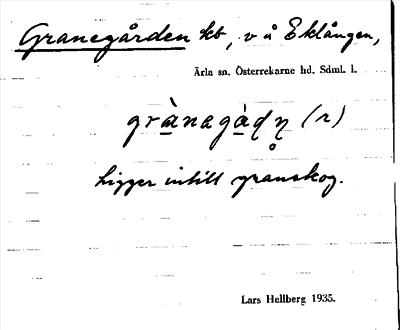 Granegården kt, v å Eklången,
Ärla sn. Österrekarne hd. Sdml. l.
grànagàḍṇ̥ (r)
Ligger intill granskog.
Lars Hellberg 1935.